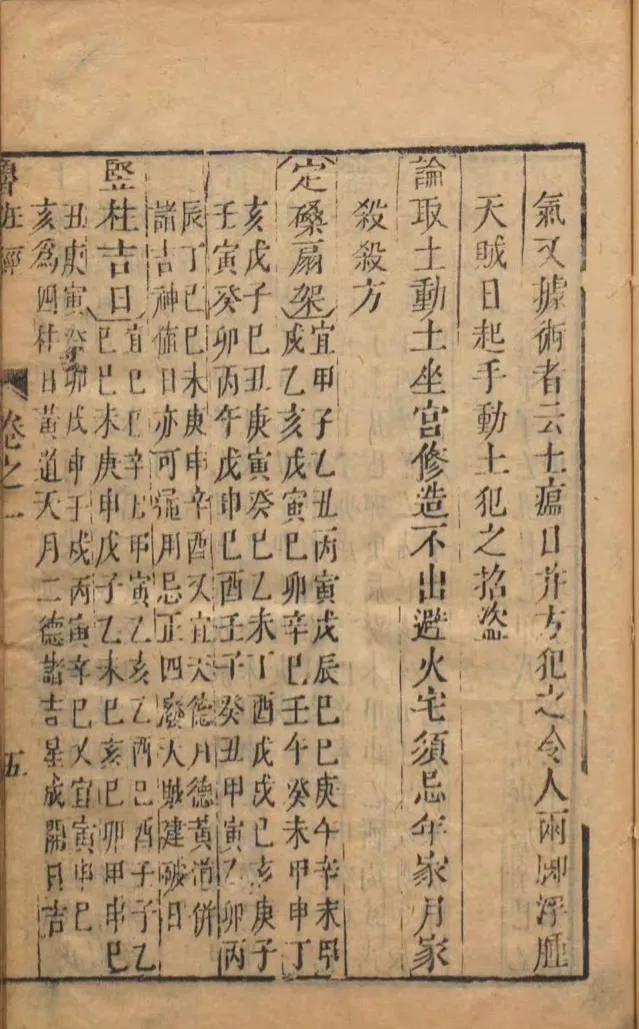 氣又據術者云土瘟日幷方犯之令人兩脚浮腫
天賊日起手動土犯之招盜
論取土動土坐宮修造不出避火宅須忌年家月家
殺殺方
定磉扇架
宜甲子乙丑丙寅戊辰巳巳庚午辛未甲
戌乙亥戊寅巳卯辛巳壬午癸未甲申丁
亥戊子巳丑庚寅癸巳乙未丁酉戊戌巳亥庚子
壬寅癸卯丙午戊申巳酉壬子癸丑甲寅乙卯丙
辰丁巳巳未庚申辛酉又宜天德月德黃道併
諸吉神值日亦可通用忌正四廢天賊建破日
竪柱吉日
宜巳巳辛丑甲寅乙亥乙酉巳酉壬子乙
巳巳未庚申戊子乙未巳亥巳卯甲申巳
丑庚寅癸卯戊申壬戌丙寅辛巳又宜寅申巳
亥爲四柱日黃道天月二德諸吉星成開日吉
魯班經
卷之一
五